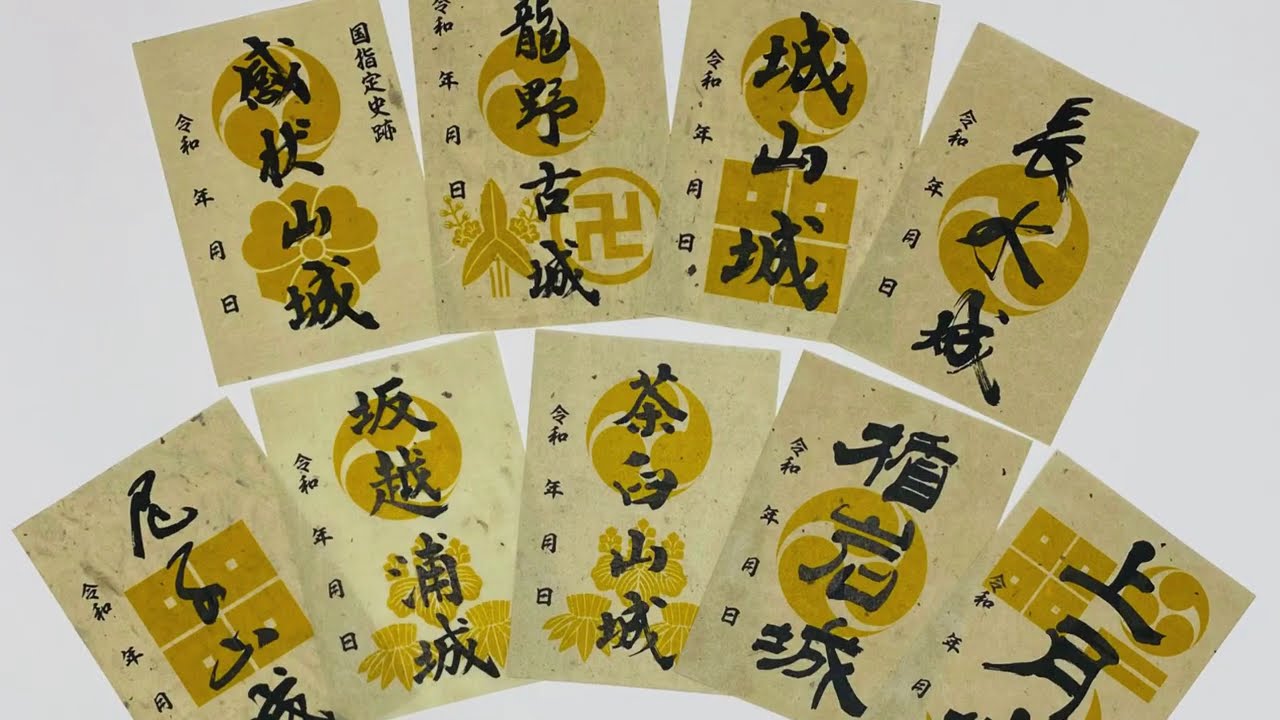 国指定史跡
感状山城
令和 年 月 日
龍野古城
令和 年 月 日
城山城
令和 年 月 日
長水城
令和 年 月 日
尼子山城
令和 年 月
坂越浦城
令和 年 月 日
茶臼山城
令和 年 月 日
楯岩城
令和 年 月 日
上月
令和 年 月